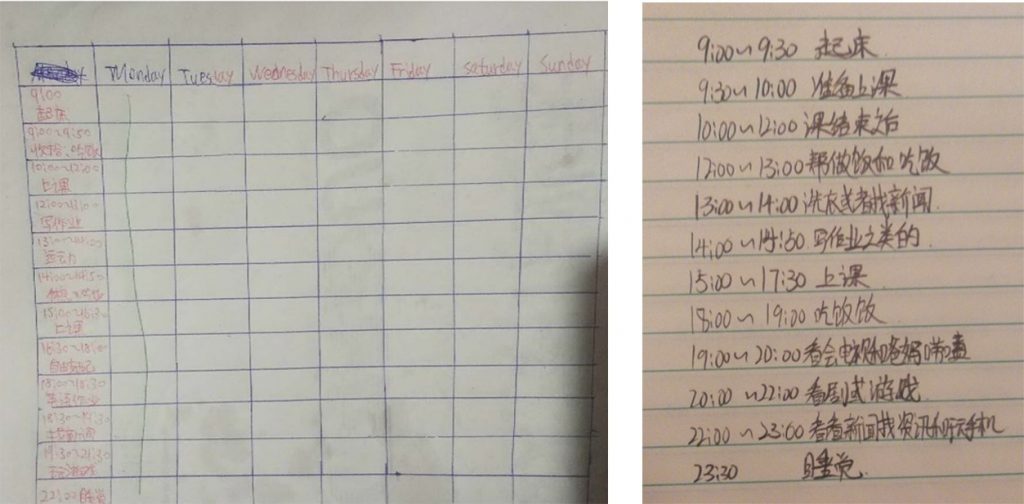 Monday Tuesday Wednesday Thursday Friday Saturday Sunday
9:00
起床
9:00~9:50
收拾、吃饭
10:00~12:00
上课
写作业
运动
14:00~14:50
上课
16:30~18:00
自由分配
18:00~18:30
英语作业
18:30~19:30
19:30~21:30
玩游戏
22:00睡觉
9:00~9:30 起床
9:30~10:00 准备上课
10:00~12:00 课结束之后
12:00~13:00 帮做饭和吃饭
13:00~14:00 洗衣或者找新闻
14:00~14:50 写作业之类的
15:00~17:30 上课
18:00~19:00 吃饭饭
19:00~20:00 看会电视和爸妈唠嗑
20:00~22:00 看剧或游戏
22:00~23:00 看看新闻找资讯和玩手机
23:30 睡觉